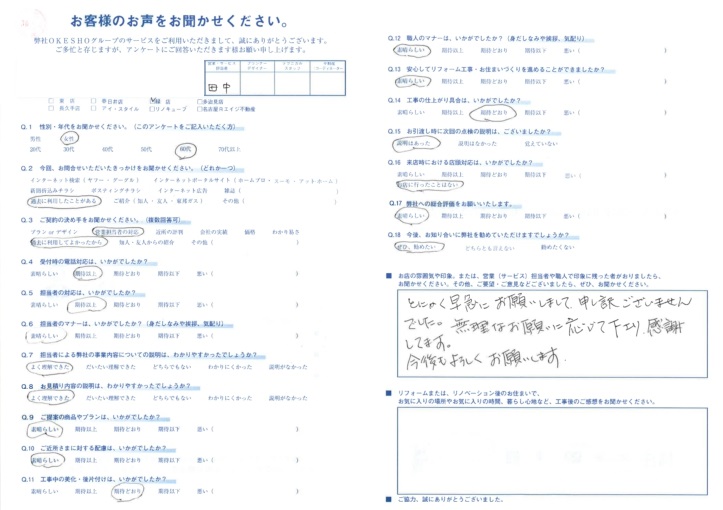 お客様のお声をお聞かせください。
弊社OKESHOグループのサービスをご利用いただきまして、誠にありがとうございます。
ご多忙と存じますが、アンケートにご回答いただきます様お願い申し上げます。
営業・サービス 担当者
プランナー デザイナー
メディカル スタッフ
不動産
田中
東店 半田本店 緑店 多治見店
長久手店 アイ・スタイル リノキューブ 名古屋ロエイジ不動産
Q.1 性別・年代をお聞かせください。(このアンケートをご記入いただく方)
男性 女性
20代 30代 40代 50代 60代 70代以上
Q.2 今回、お問合せいただいたきっかけをお聞かせください。(どれか一つ)
インターネット検索 (ヤフー・グーグル) インターネットポータルサイト (ホームプロ・スーモ・アットホーム)
新聞折込みチラシ ポスティングチラシ インターネット広告 雑誌 ( )
過去に利用したことがある ご紹介 (知人・友人・東邦ガス) その他 ( )
Q.3 ご契約の決め手をお聞かせください。(複数回答可)
プラン or デザイン 営業担当者の対応 近所の評判 会社の実績 価格 わかり易さ
過去に利用してよかったから 知人・友人からの紹介 その他 ( )
Q.4 受付時の電話対応は、いかがでしたか?
素晴らしい 期待以上 期待どおり 期待以下 悪い ( )
Q.5 担当者の対応は、いかがでしたか?
素晴らしい 期待以上 期待どおり 期待以下 悪い ( )
Q.6 担当者のマナーは、いかがでしたか?(身だしなみや挨拶、気配り)
素晴らしい 期待以上 期待どおり 期待以下 悪い ( )
Q.7 担当者による弊社の事業内容についての説明は、わかりやすかったでしょうか?
よく理解できた だいたい理解できた どちらでもない わかりにくかった 説明がなかった
Q.8 お見積り内容の説明は、わかりやすかったでしょうか?
よく理解できた だいたい理解できた どちらでもない わかりにくかった 説明がなかった
Q.9 ご提案の商品やプランは、いかがでしたか?
素晴らしい 期待以上 期待どおり 期待以下 悪い ( )
Q.10 ご近所さまに対する配慮は、いかがでしたか?
素晴らしい 期待以上 期待どおり 期待以下 悪い ( )
Q.11 工事中の美化・後片付けは、いかがでしたか?
素晴らしい 期待以上 期待どおり 期待以下 悪い ( )
Q.12 職人のマナーは、いかがでしたか?(身だしなみや挨拶、気配り)
素晴らしい 期待以上 期待どおり 期待以下 悪い ( )
Q.13 安心してリフォーム工事・お住まいづくりを進めることができましたか?
素晴らしい 期待以上 期待どおり 期待以下 悪い ( )
Q.14 工事の仕上がり具合は、いかがでしたか?
素晴らしい 期待以上 期待どおり 期待以下 悪い ( )
Q.15 お引渡し時に次回の点検の説明は、ございましたか?
説明はあった 説明はなかった 覚えていない
Q.16 来店時における店頭対応は、いかがでしたか?
素晴らしい 期待以上 期待どおり 期待以下 悪い ( )
お店に行ったことはない
Q.17 弊社への総合評価をお願いします。
素晴らしい 期待以上 期待どおり 期待以下 悪い ( )
Q.18 今後、お知り合いに弊社を勧めていただけますでしょうか?
ぜひ、勧めたい どちらとも言えない 勧めたくない
■ お店の雰囲気や印象、または、営業(サービス)担当者や職人で印象に残った者がおりましたら、
お聞かせください。その他、ご要望・ご意見などございましたら、ぜひ、お聞かせください。
とにかく早急にお願いしまして、申訳ございません
でした。無理なお願いに応じて下さり、感謝
してます。
今後もよろしくお願いします。
■ リフォームまたは、リノベーション後のお住まいで、
お気に入りの場所やお気に入りの時間、暮らし心地など、工事後のご感想をお聞かせください。
■ ご協力、誠にありがとうございました。